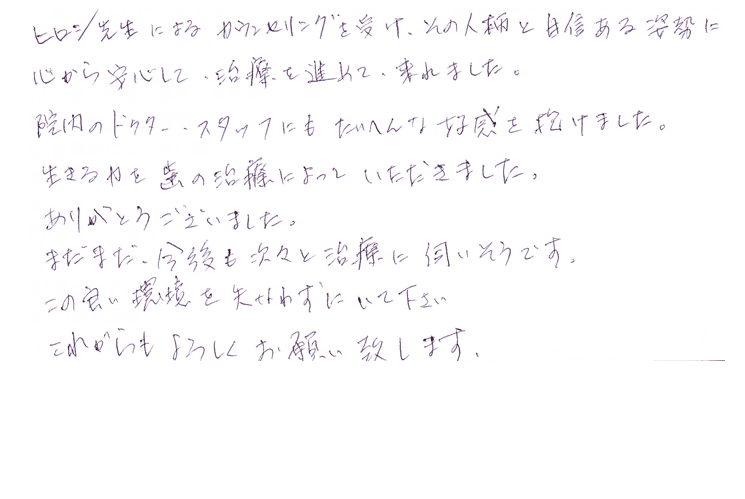 ヒロシ先生によるカウンセリングを受け、その人柄と自信ある姿勢に
心から安心して、治療を進めて、来れました。
院内のドクター、スタッフにもたいへんな好感を抱けました。
生きる力を歯の治療によっていただきました。
ありがとうございました。
まだまだ、今後も次々と治療に伺いそうです。
この良い環境を失なわずにいて下さい
これからもよろしくお願い致します。